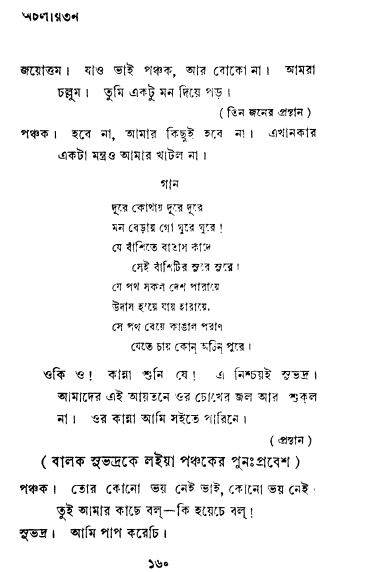 অচলায়তন
জয়োত্তম। যাও ভাই পঞ্চক, আর বোকো না। আমরা
চল্লুম। তুমি একটু মন দিয়ে পড়।
( তিন জনের প্রস্থান )
পঞ্চক। হবে না, আমার কিছুই হবে না। এখানকার
একটা মন্ত্রও আমার খাটল না।
গান
দূরে কোথায় দূরে দূরে
মন বেড়ায় গো ঘুরে ঘুরে!
যে বাঁশিতে বাতাস কাঁদে
সেই বাঁশিটির সুরে সুরে।
যে পথ সকল দেশ পারায়ে
উদাস হ'য়ে যায় হারায়ে,
সে পথ বেয়ে কাঙাল পরাণ
যেতে চায় কোন্ অচিন্ পুরে।
ওকি ও! কান্না শুনি যে! এ নিশ্চয়ই সুভদ্র।
আমাদের এই আয়তনে ওর চোখের জল আর শুকল
না। ওর কান্না আমি সইতে পারিনে।
( প্রস্থান )
( বালক সুভদ্রকে লইয়া পঞ্চকের পুনঃপ্রবেশ )
পঞ্চক। তোর কোনো ভয় নেই ভাই, কোনো ভয় নেই।
তুই আমার কাছে বল্—কি হয়েচে বল্!
সুভদ্র। আমি পাপ করেচি।
১৬০